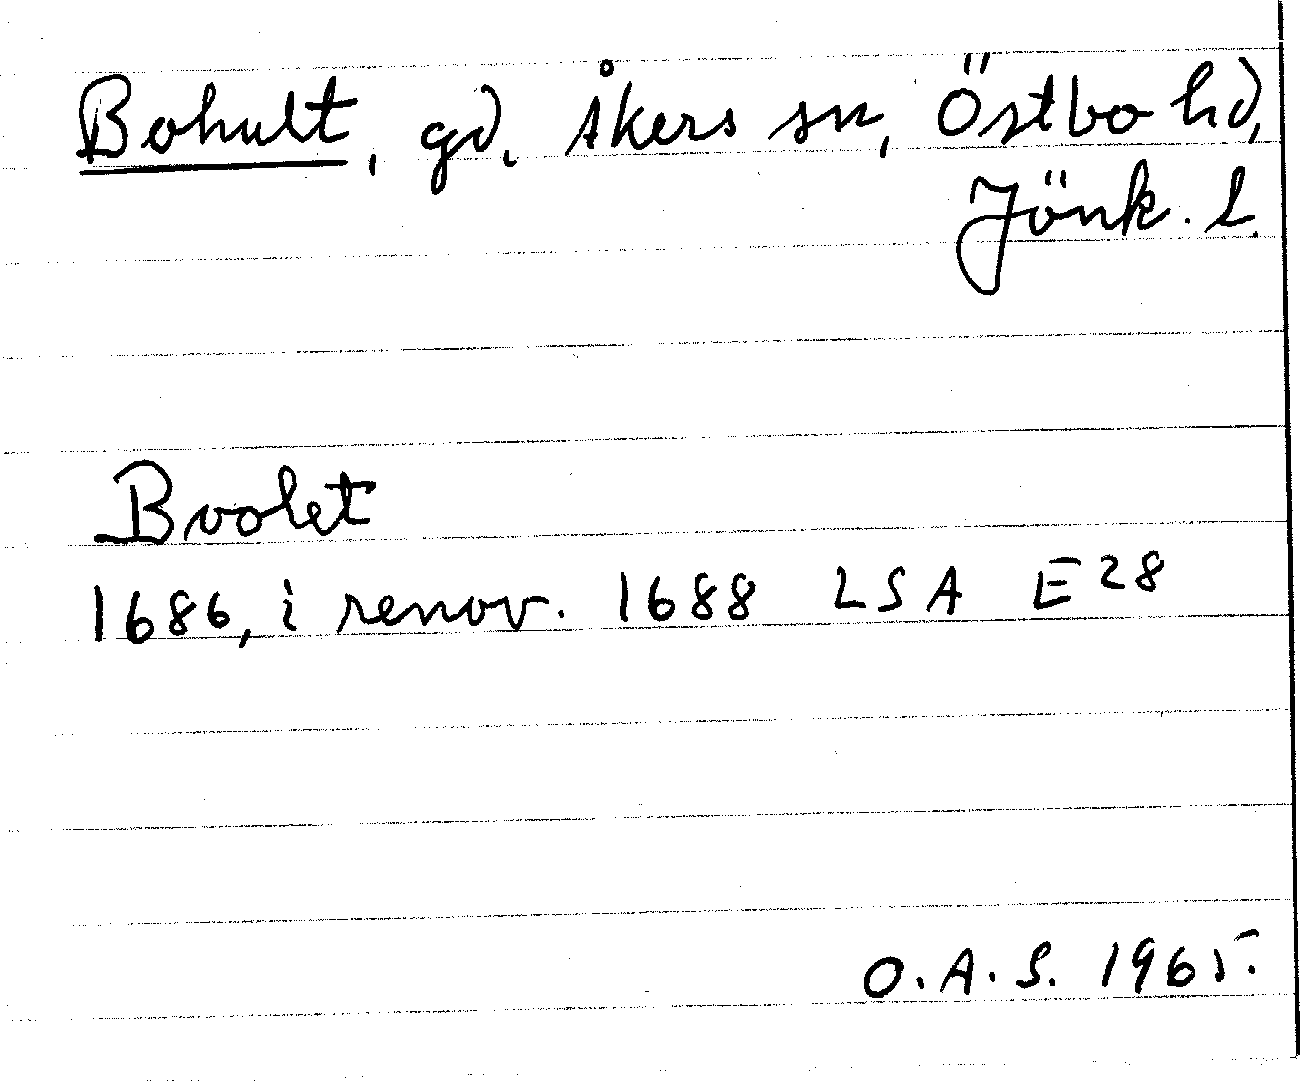 Bohult, gd, Åkers sn, Östbo hd,
Jönk. l.
Bvolet
1686, i renov. 1688 LSA E28
O.A.S. 1965.